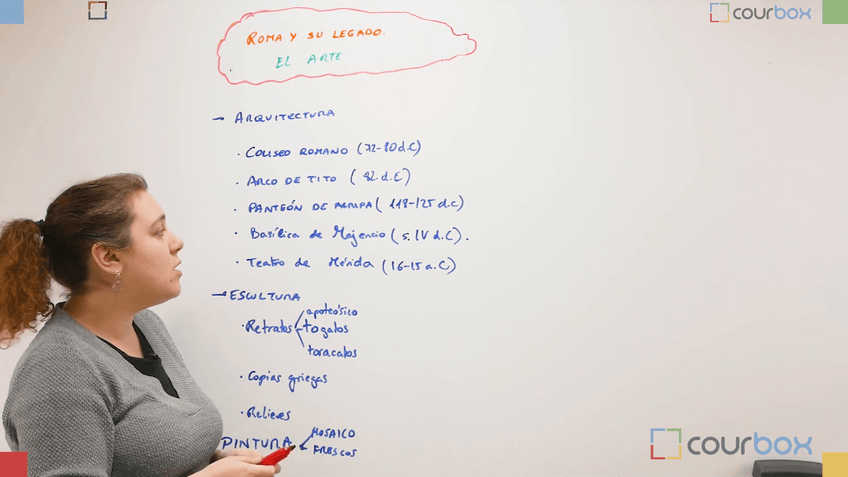 courbox
ROMA Y SU LEGADO.
EL ARTE
→ ARQUITECTURA
· COLISEO ROMANO (72-80 d.C)
· ARCO DE TITO ( 82. d.C)
· PANTEÓN DE AGRIPA ( 118-125 d.c)
· Basílica de Majencio ( s. IV d.C).
· Teatro de Mérida (16-15 a.C)
→ ESCULTURA
apoteósico
· Retratos togatos
toracatos
· Copias griegas
· Relieves
PINTURA MOSAICO
FRESCOS
courbox